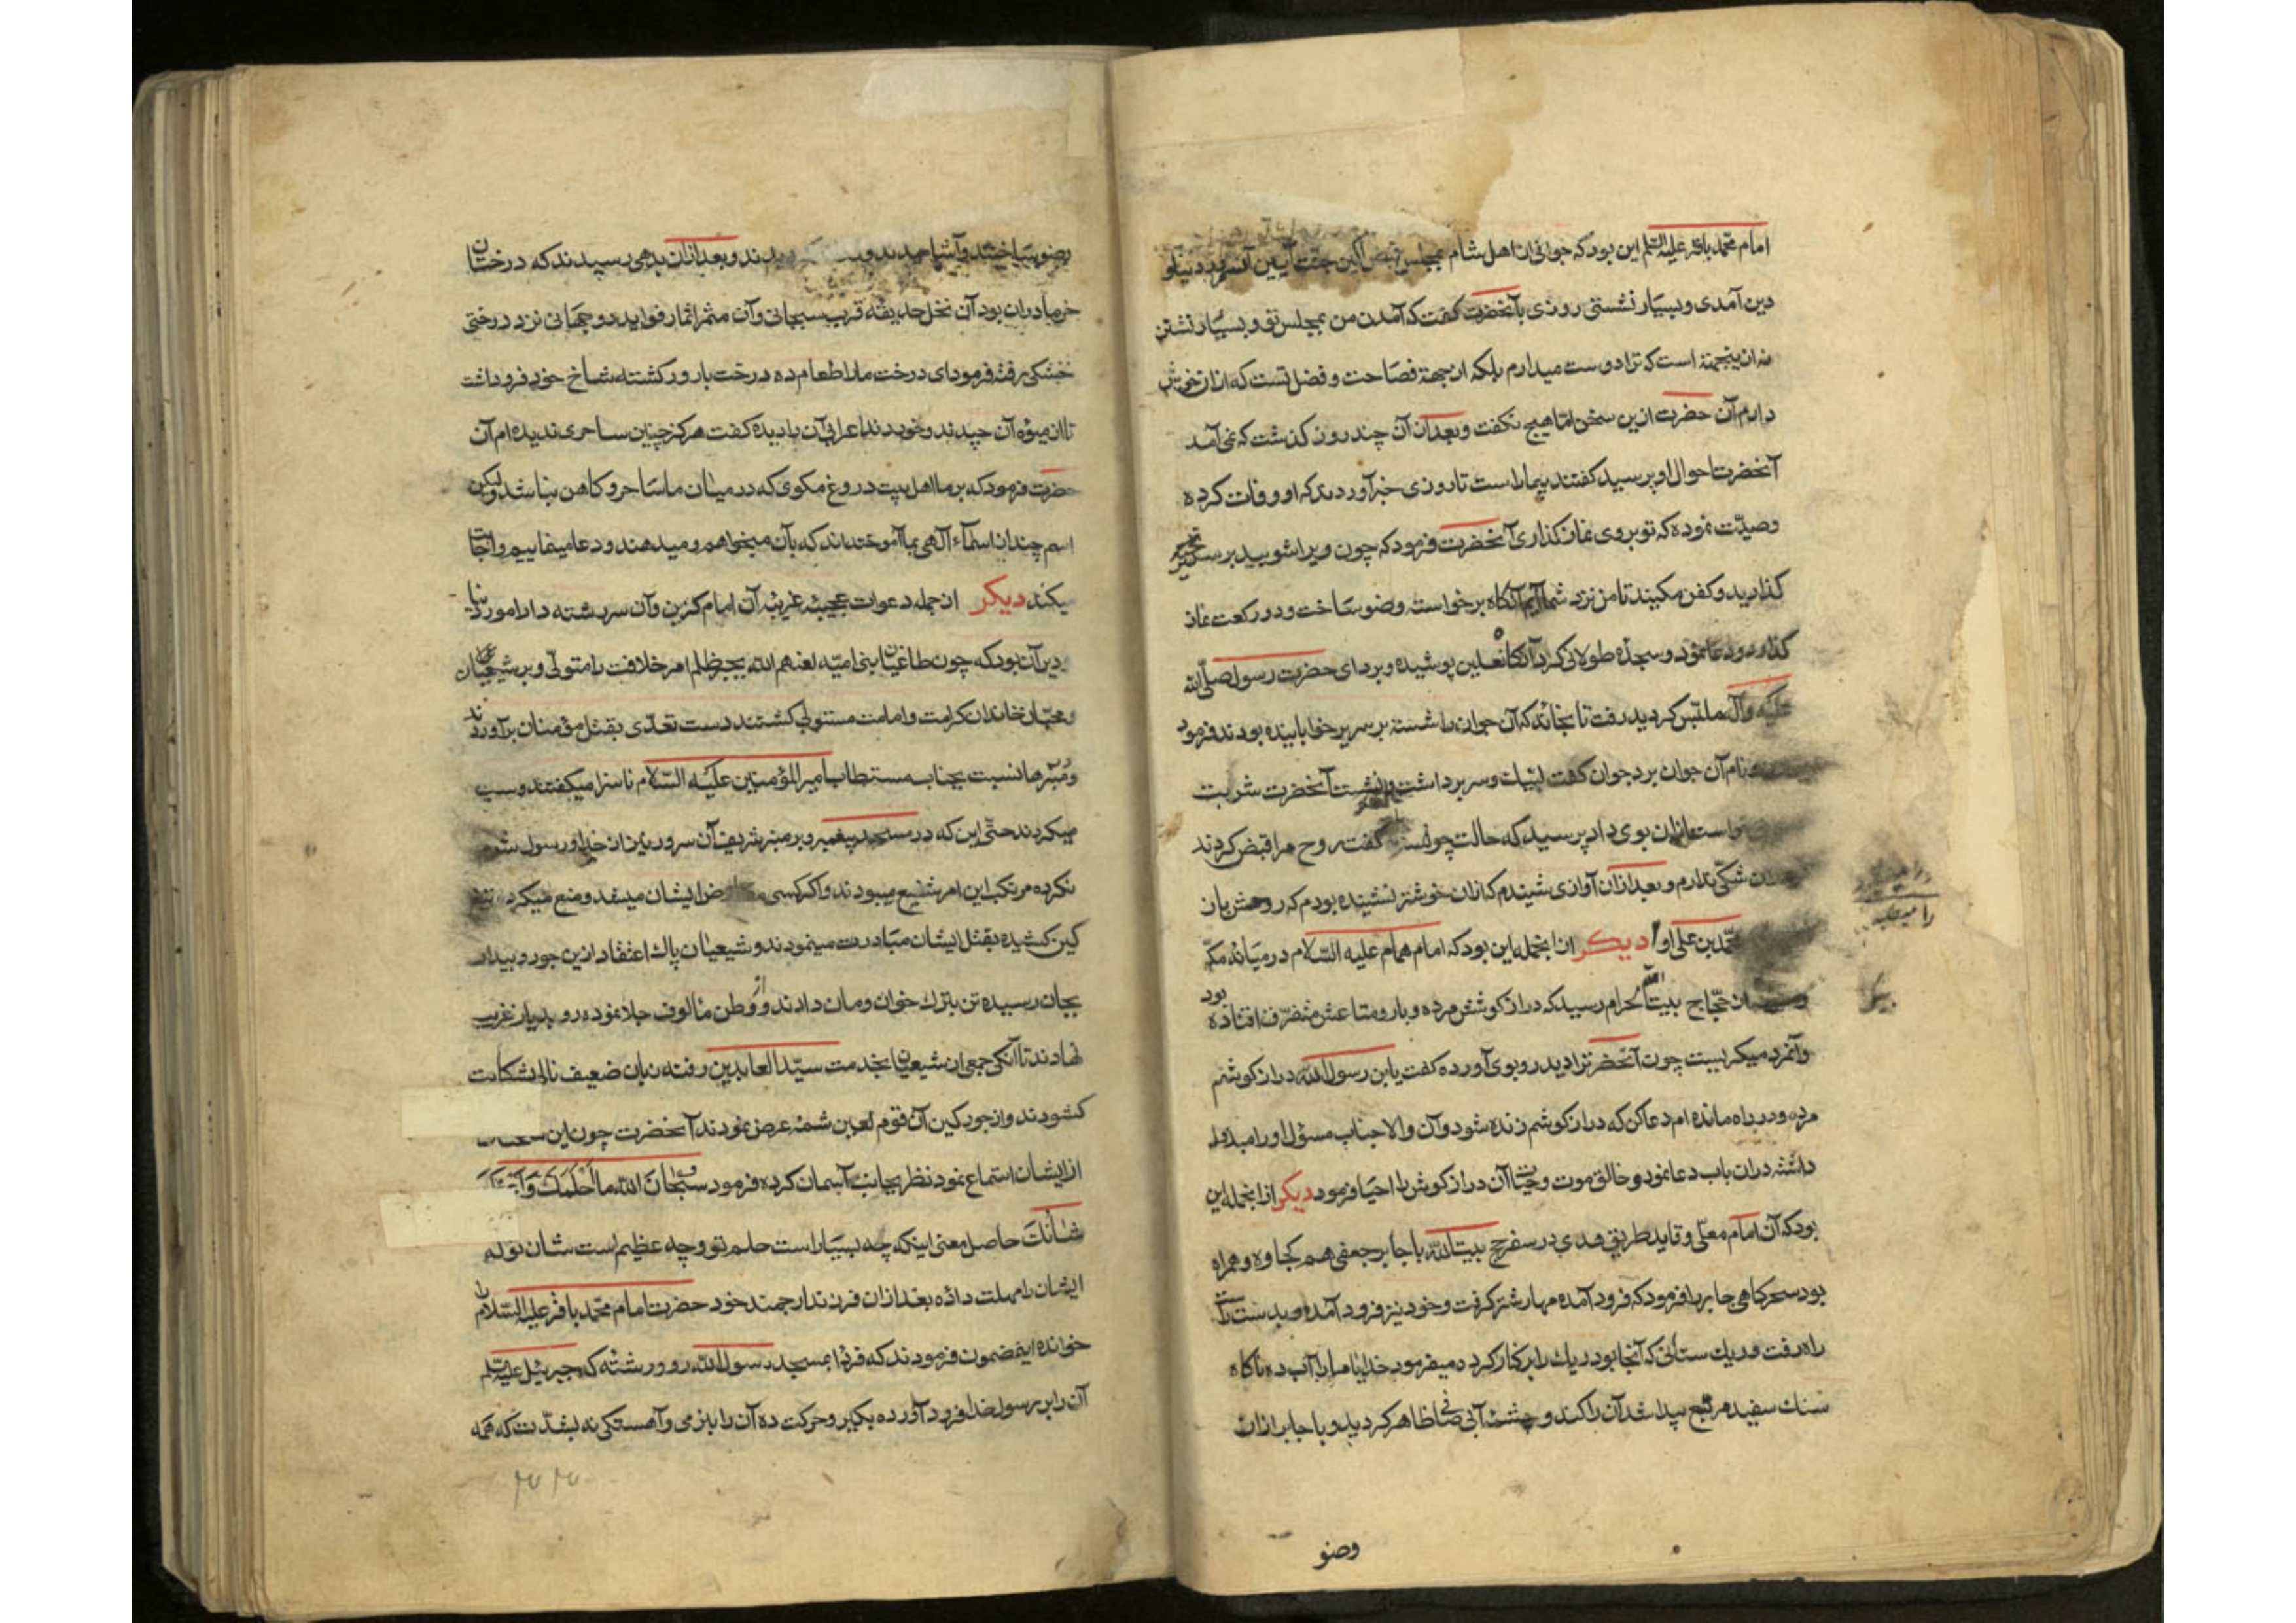 امام محمد باقر علیه السلم این بود که جوانی از اهل شام بمجلس
دین آمدی و بسیار نشستی روزی بآنحضرت گفت که آمدن من بمجلس تو و بسیار نشستن
نه ازینجهة است که ترا دوست میدارم بلکه از جهة فصاحت و فضل تست که
دارم آن حضرت ازین سخن اما هیچ نگفت و بعد از آن چند روز گذشت که نمی آمد
آنحضرت احوال او پرسید گفتند بیمار است تا روزی خبر آوردند که او وفات کرده
وصیّت نموده که تو بروی نماز گذاری آنحضرت فرمود که چون ویرا شویید بر سریر
گذارید و کفن مکنید تا من نزد شما آیم آنگاه برخواسته وضو ساخت و دو رکعت نماز
گذارد و دعا نمود و سجدهٔ طولانی کرد آنگاه نعلین پوشیده و بردای حضرت رسول صلی الله
علیه وآله ملتبس گردید رفت تا بخانه که آن جوان را شسته بر سریر خوابانیده بودند فرمود
نام آن جوان برد جوان گفت لبیك و سر برداشت و نشست آنحضرت شربت
بوی داد پرسید که حالت چونست گفت روح مرا قبض کردند
شکی ندارم و بعد ازان آوازی شنیدم که ازان خوشتر نشنیده بودم که روحش بان
محمد بن علی او را دیکر ازانجمله این بود که امام همام علیه السّلام در میانهٔ مکه
حجاج بیت الله الحرام رسید که درازکوشش مرده و بار و متاعش متفرّق افتاده بود
وآنمرد میکریست چون آنحضرترا دید رو بوی آورده گفت یابن رسول الله درازکوشم
مرده و در راه مانده ام دعا کن که درازکوشم زنده شود و آن والاجناب مسؤل او را مبذول
داشته دران باب دعا نمود و خالق موت و حیات آن درازکوش را احیا فرمود دیکر ازانجمله این
بود که آن امام معلی و قاید طریق هدی در سفر حج بیت الله با جابر جعفی هم کجاوه و همراه
بود سحرکاهی جابر را فرمود که فرود آمده مهار شتر گرفت و خود نیز فرود آمده و بدست راست
راه رفت و ریك ستانی که آنجا بود ریك را برکنار کرده میفرمود خدایا ما را آب ده ناکاه
سنك سفید مربع پیدا شد آن را کند و چشمه آبی صافی ظاهر کردید و با جابر ازان
وضو
وضو ساختند و آشامیدند و بعد ازان بدهی رسیدند که درختان
خرما دران بود آن نخل حدیقه قرب سبحانی وآن مثمر اثمار فواید دو جهانی نزد درختی
خشکی رفته فرمود ای درخت ما را طعام ده درخت بارور کشته شاخ خود فرو داشت
تا ازمیوهٔ آن چیدند و خوردند اعرابی آن بادیده گفت هرکز چنین ساحری ندیده ام آن
حضرت فرمود که بر ما اهل بیت دروغ مکوی که در میان ما ساحر و کاهن نباشد ولیکن
اسم چند از اسمآء آلهی بما آموخته اند که بآن میخواهم و میدهند و دعا مینماییم و اجابت
یکند دیکر ازجمله دعوات عجیبه غریبه آن امام کزین وآن سررشته دار امور دنیا
دین آن بود که چون طاغیان بنی امیّه لعنهم الله بجبر ظلم امر خلافت را متولی و بر شیعیان
و محبّان خاندان کرامت و امامت مستولی کشتند دست تعدّی بقتل مؤمنان برآوردند
و بر منبرها نسبت بجناب مستطاب امیرالمؤمنین علیه السّلام ناسزا میگفتند و سب
میکردند حتّی این که در مسجد پیغمبر و بر منبر شریف آن سرور نیز از خدا و رسول شرم
نکرده مرتکب این امر شنیع میبودند و اکر کسی ایشان میشد و منع میکرد
کین کشیده بقتل ایشان مبادرت مینمودند و شیعیان پاك اعتقاد ازین جور و بیداد
بجان رسیده تن بترك خوان و مان دادند و از وطن مألوف جلا نموده رو بدیار غربت
نهادند تا آنکه جمعی از شیعیان بخدمت سیّدالعابدین رفته زبان ضعیف نالی بشکایت
کشودند و از جور کین آن قوم لعین شمهٔ عرض نمودند آنحضرت چون این سخنان
از ایشان استماع نمود نظر بجانب آسمان کرده فرمود سبحان الله ما احلمك و
شأنك حاصل معنی اینکه چه بسیار است حلم تو و چه عظیم است شان تو که
ایشان را مهلت دادهٔ بعد ازان فرزند ارجمند خود حضرت امام محمد باقر علیه السلام را
خوانده اینمضمون فرمودند که فردا بمسجد رسول الله رو و رشته که جبرئیل علیه السلم
آن را بر رسول خدا فرود آورده بکیر و حرکت ده آن را بنرمی و آهستکی نه بشدّت که همه